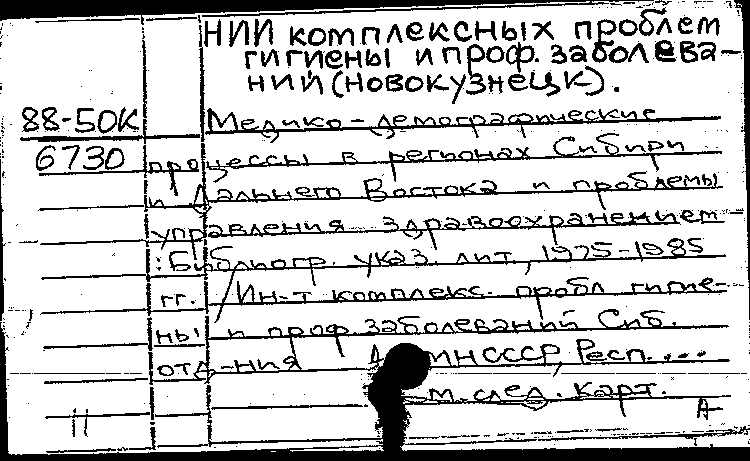 НИИ комплексных проблем
гигиены и проф. заболева-
ний (Новокузнецк).
88-50К
Медико-демографические
6730
процессы в регионах Сибири
и Дальнего Востока и проблемы
управления здравоохранением
: Библиогр. указ. лит., 1975-1985
гг. / Ин-т комплекс. пробл гигие-
ны и проф. заболеваний Сиб.
отд-ния АМН СССР, Респ....
См. след. карт.
11
А